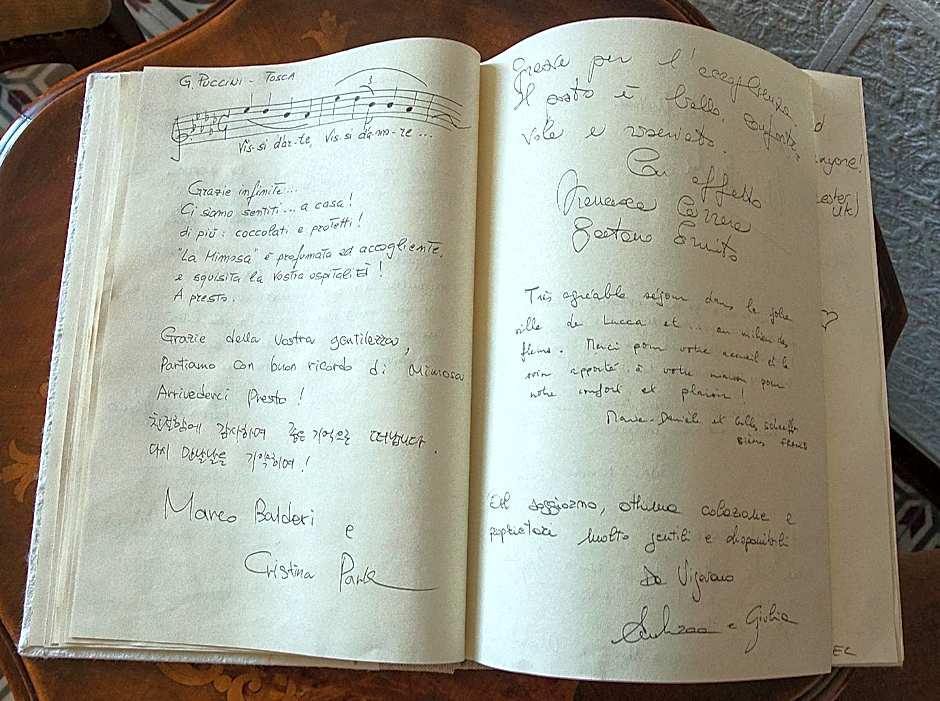 G. PUCCINI - TOSCA
Vis-si d'ar-te, vis-si d'a-mo-re ...
Grazie infinite...
Ci siamo sentiti... a casa!
di più: coccolati e protetti!
"La Mimosa" è profumata ed accogliente,
e squisita la vostra ospitalità!
A presto.
Grazie della Vostra gentilezza,
Partiamo con buon ricordo di Mimosa
Arrivederci Presto!
친절함에 감사하며 좋은 기억으로 떠납니다.
다시 만날날을 기약하며!
Marco Balderi
e
Cristina Park
Grazie per l'accoglienza.
Il posto è bello, conforte-
vole e riservato.
Con affetto
Francesca Carrera
Gaetano
Très agréable séjour dans la jolie
ville de Lucca et ... au milieu des
fleurs. Merci pour votre accueil et le
soin apporté à votre maison pour
notre confort et plaisir!
Marie-Danièle et Gilles
soggiorno, ottima colazione e
proprietari molto gentili e disponibili
Da Vigevano
e Giulia